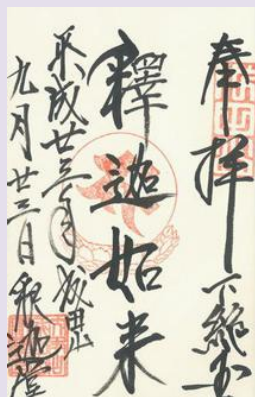 奉拝 下総国
釋迦如来
平成廿三年 成田山
九月廿三日 釈迦堂